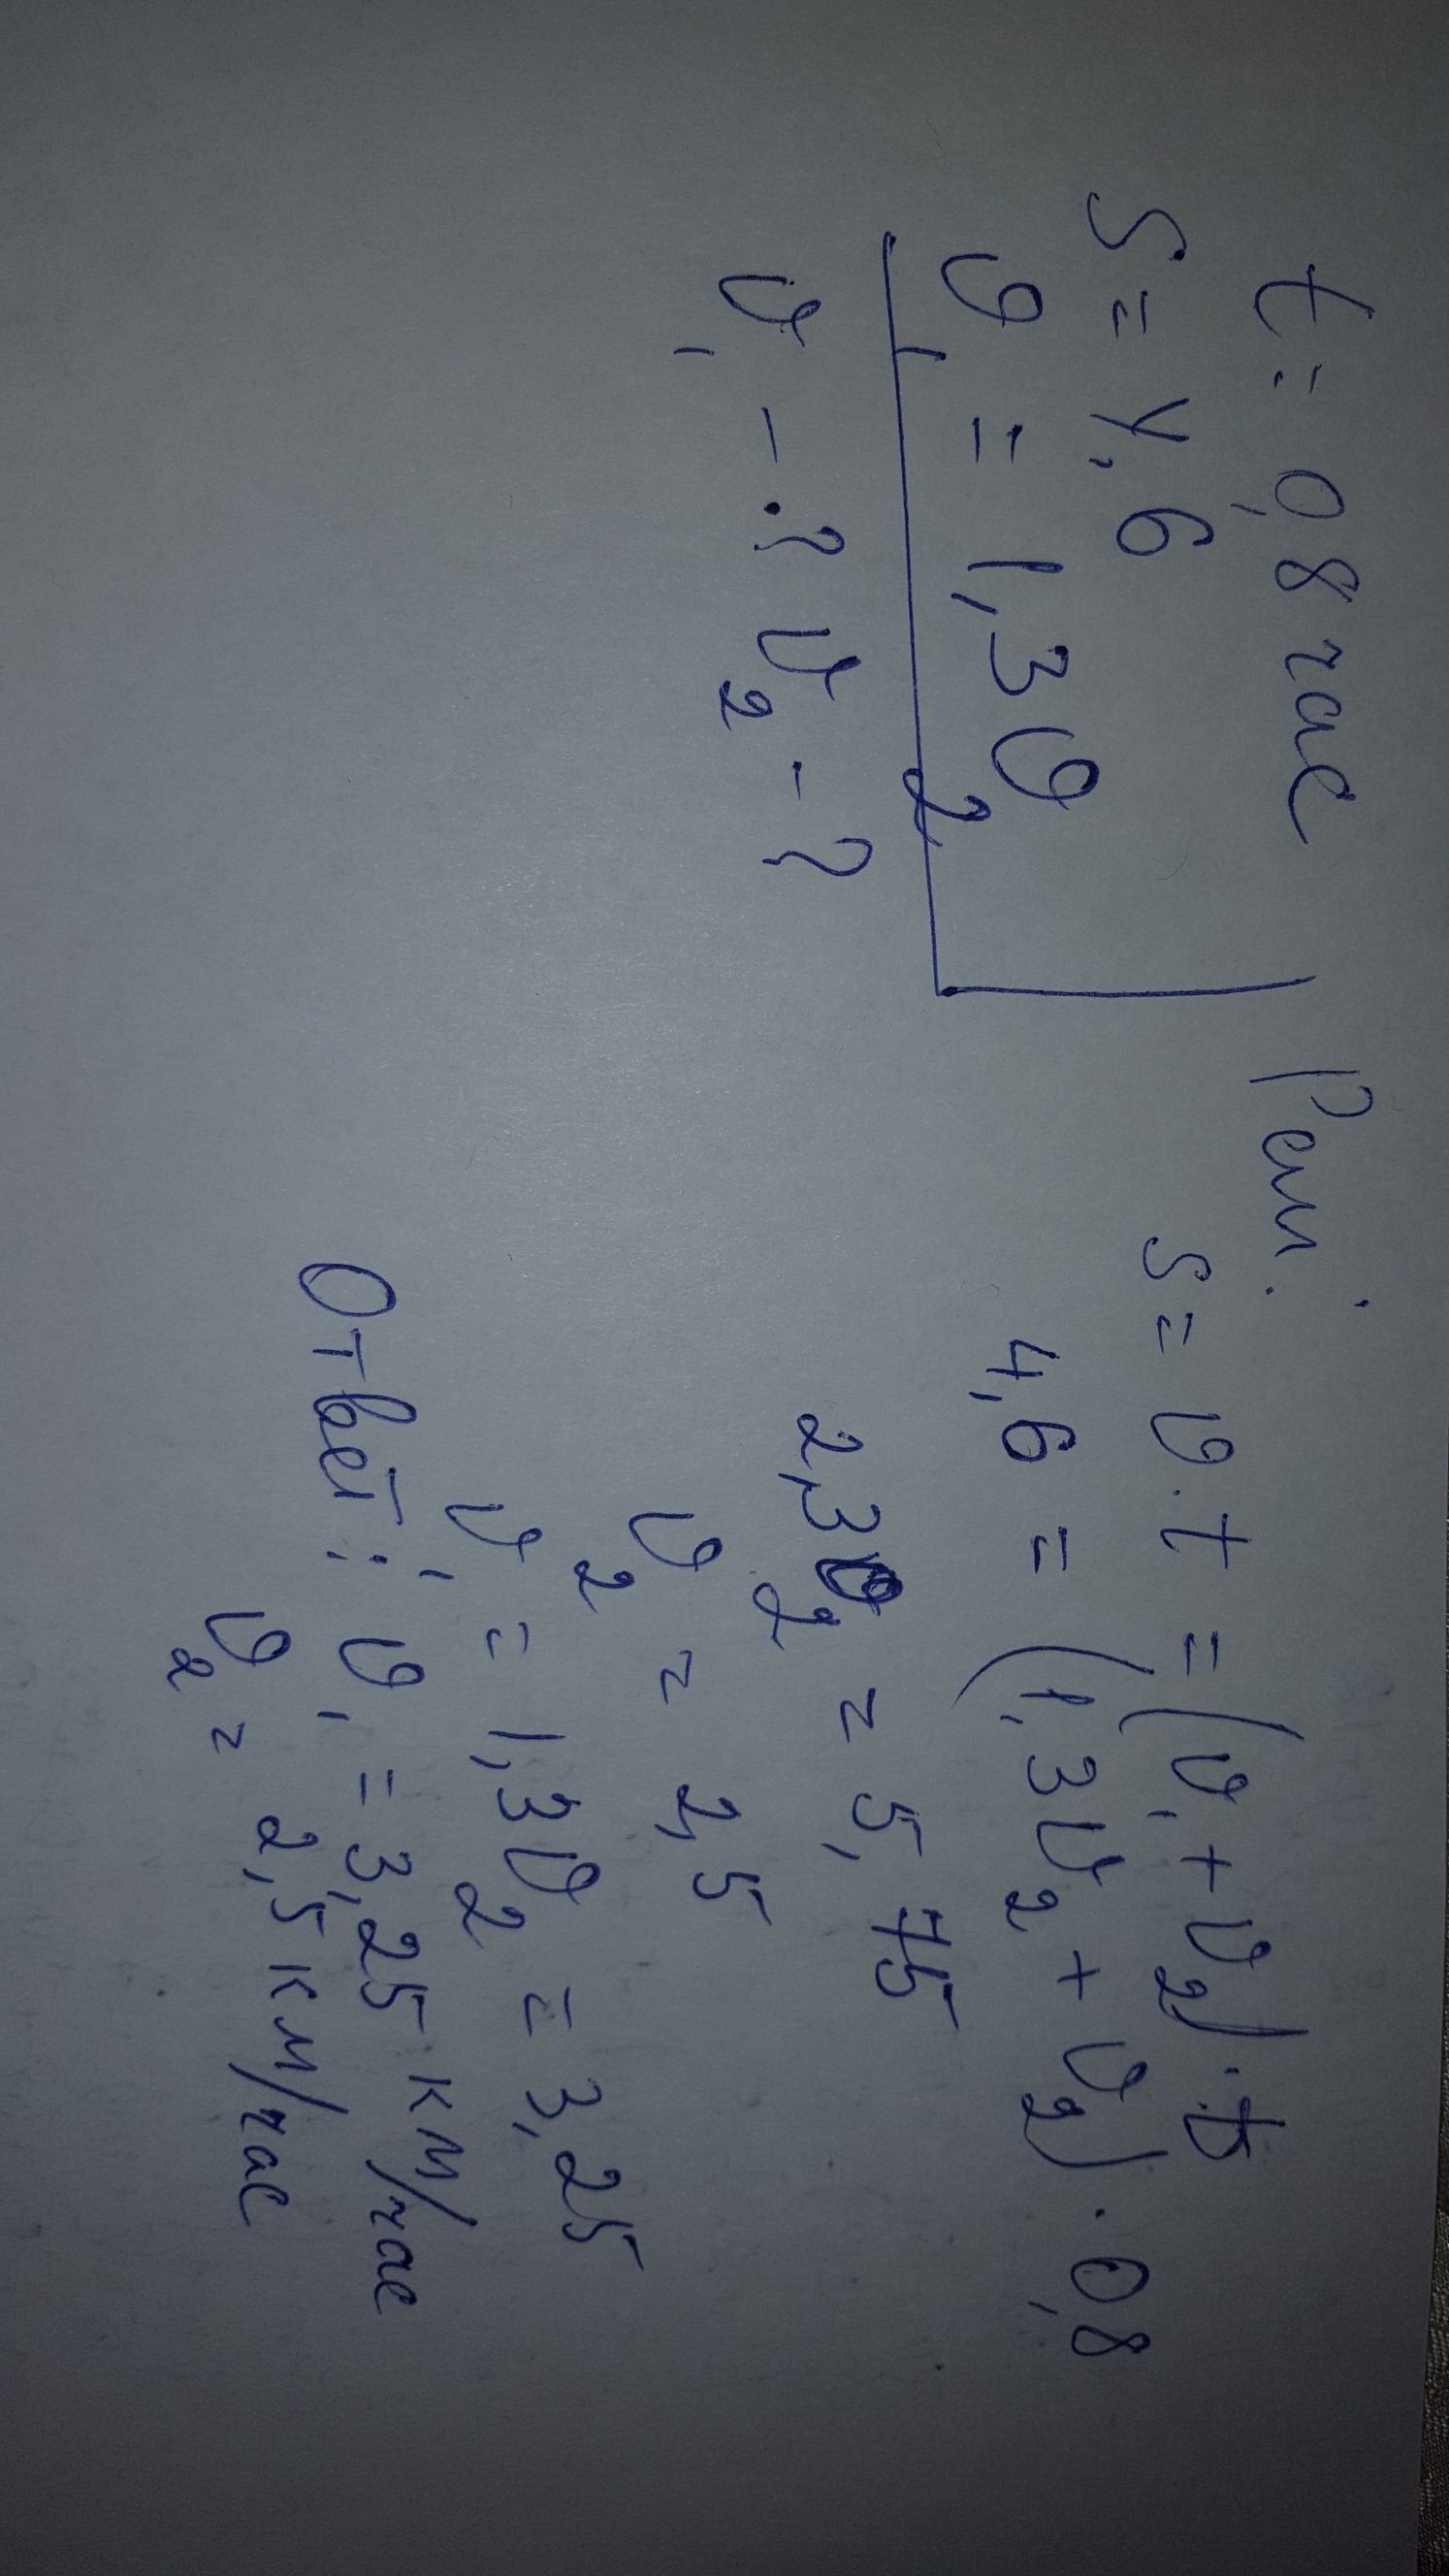 t = 0,8 час
S = 4,6
υ₁ = 1,3υ₂
υ₁ - ? υ₂ - ?
Реш:
S = υ·t = (υ₁ + υ₂)·t
4,6 = (1,3υ₂ + υ₂)·0,8
2,3υ₂ = 5,75
υ₂ = 2,5
υ₁ = 1,3υ₂ = 3,25
Ответ: υ₁ = 3,25 км/час
υ₂ = 2,5 км/час